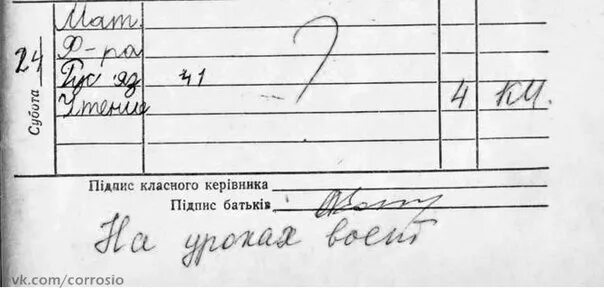 Мат.
Ф-ра
24 Рус яз 41
Субота
Чтение 4 КМ.
Підпис класного керівника
Підпис батьків
На уроках воет
vk.com/corrosio